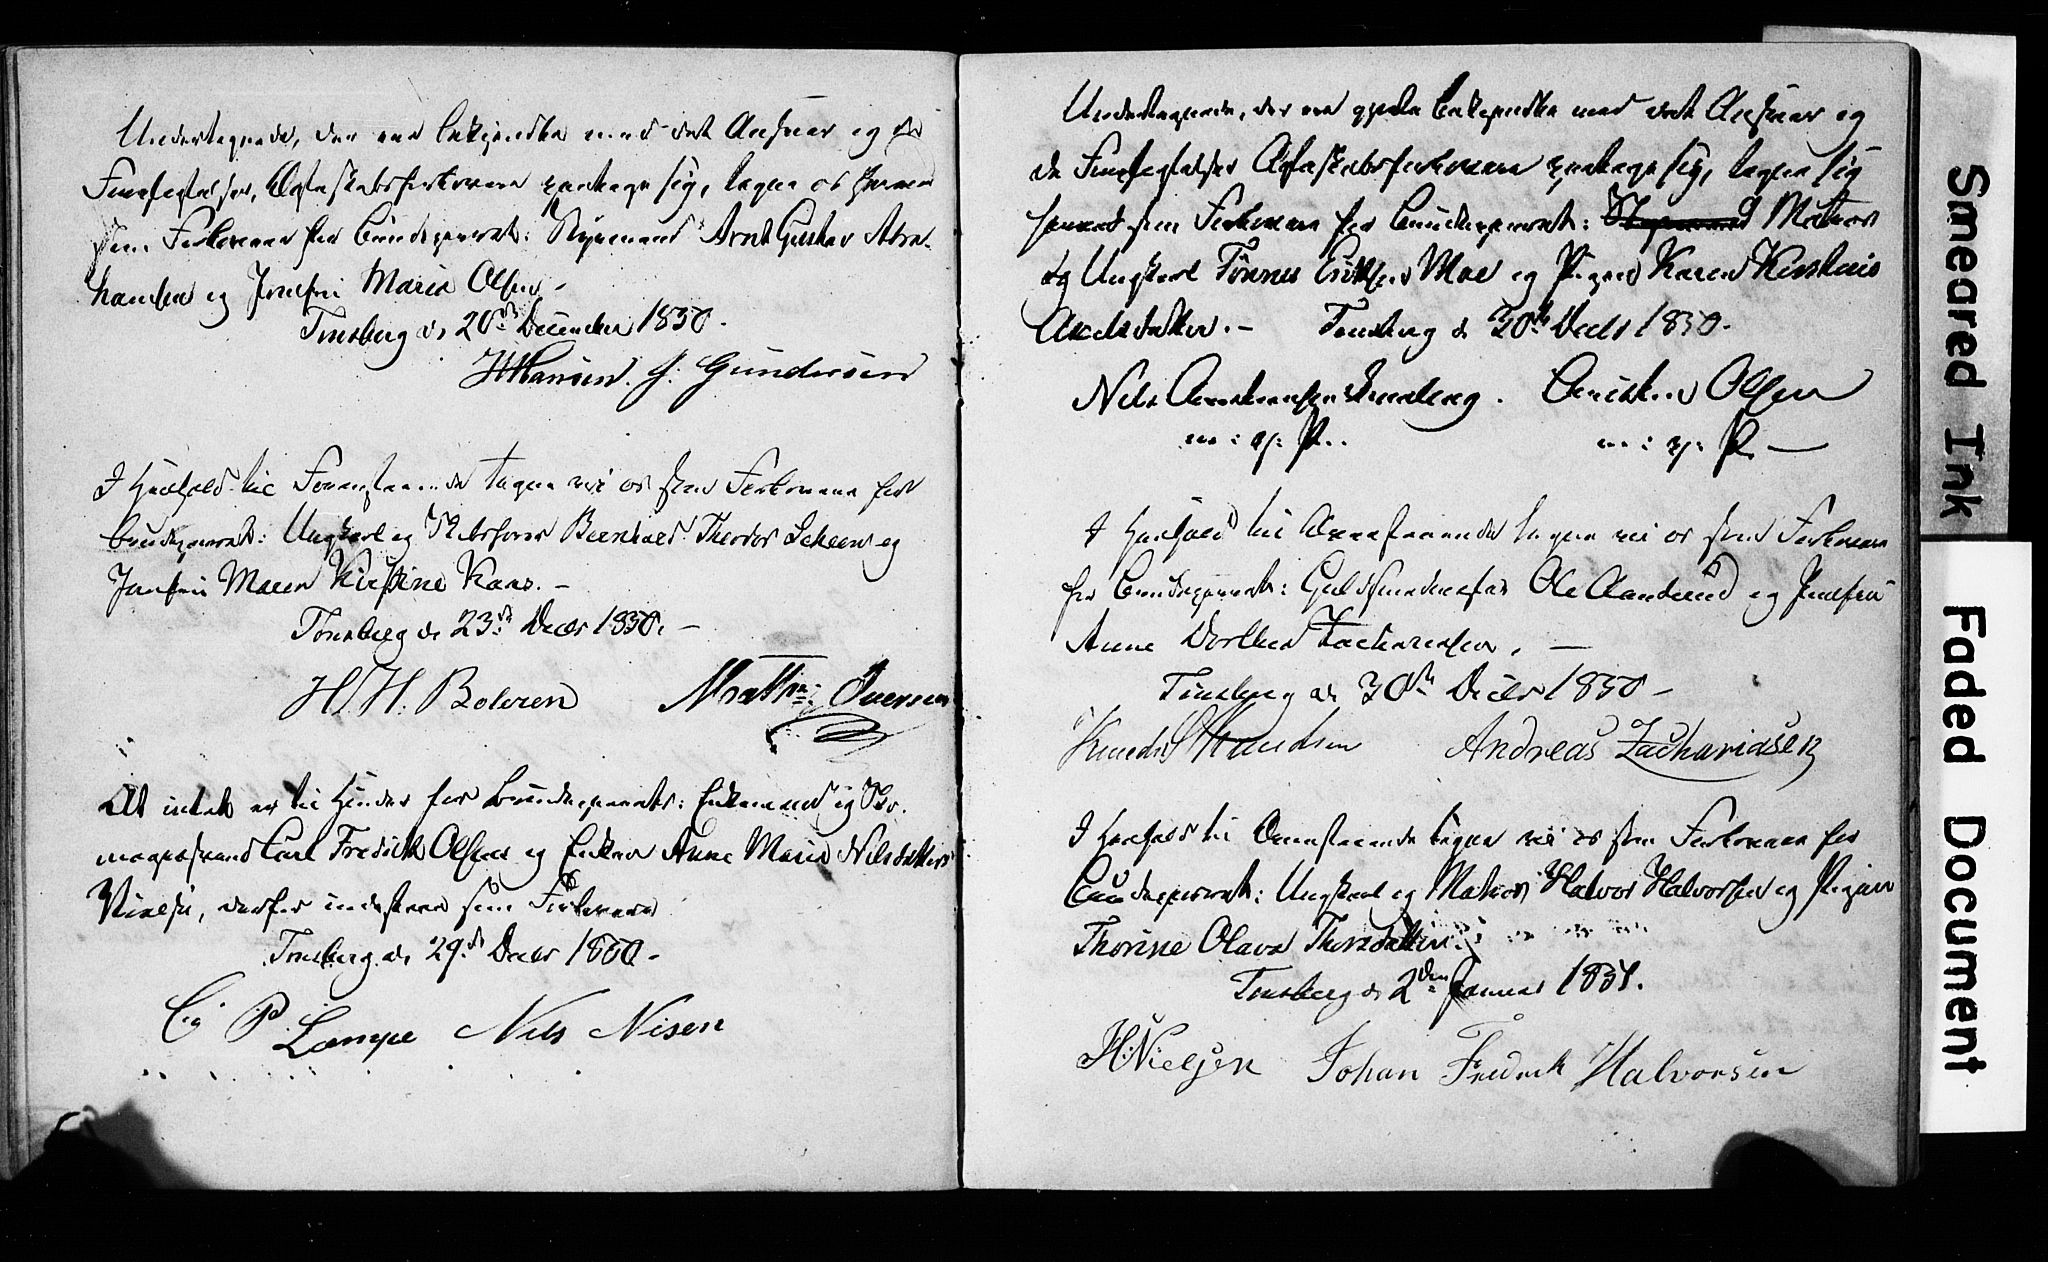 Undertegnede, der ere bekjendte med det Ansvar og de
Forpligtelser, Ægteskabsforlovere paatage sig, tagne os herved
som Forlovere for Brudeparret: Styrmand Arnt Gustav Abra-
hamsen og Jomfru Maria Olsen -
Tønsberg d. 20de December 1850.
HHansen. G. Gundersen
I Henhold til Foranstaaende tagne vi os som Forlovere for
Brudeparret: Ungkarl og Skibsfører Bernhard Theodor Scheen og
Jomfru Maren Kirstine Kaas. -
Tønsberg d. 23de Decbr 1850. -
H. H. Bolxren Matth: Iversen
At intet er til Hinder for Brudeparrets: Enkemand og Sko-
magersvend Carl Fredrik Olsen og Enken Anne Marie Nilsdatters
Vielse, derfor indestaae som Forlovere
Tønsberg d. 29de Decbr 1850. -
P. Lampe Nils Nisen
Undertegnede, der ere bekjendte med det Ansvar og
de Forpligtelser Ægteskabsforlovere paatage sig, tagne sig
herved som Forlovere for Brudeparret: Matros
og Ungkarl Tønnes Eriksen Moe og Pigen Karen Kirstine
Axelsdatter. - Tønsberg d. 30te Decbr 1850.
Nils Tønsberg. Christen Olsen
m: p: P. m: p: P. -
I Henhold til Ovenstaaende tagne vi os som Forlovere
for Brudeparret: Guldsmedmester Ole Aanderud og Jomfru
Anne Dorthea Zachariasen. -
Tønsberg d. 30te Decbr 1850 -
Knudsen Andreas Zachariasen
I Henhold til Ovenstaaende tagne vi os som Forlovere for
Brudeparret: Ungkarl og Matros Halvor Halvorsen og Pigen
Thorine Olava Thorsdatter.
Tønsberg d. 2den Januar 1851.
H: Nielsen Johan Fredrik Halvorsen
Smeared Ink
Faded Document